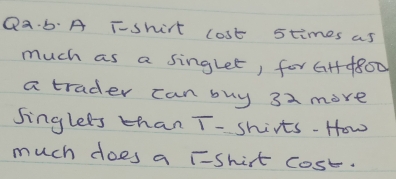 Qa.b. A T-shirt cost 5 times as
much as a singlet, for GH¢800
a trader can buy 32 more
Singlets than T-shirts - How
much does a T-shirt cost.